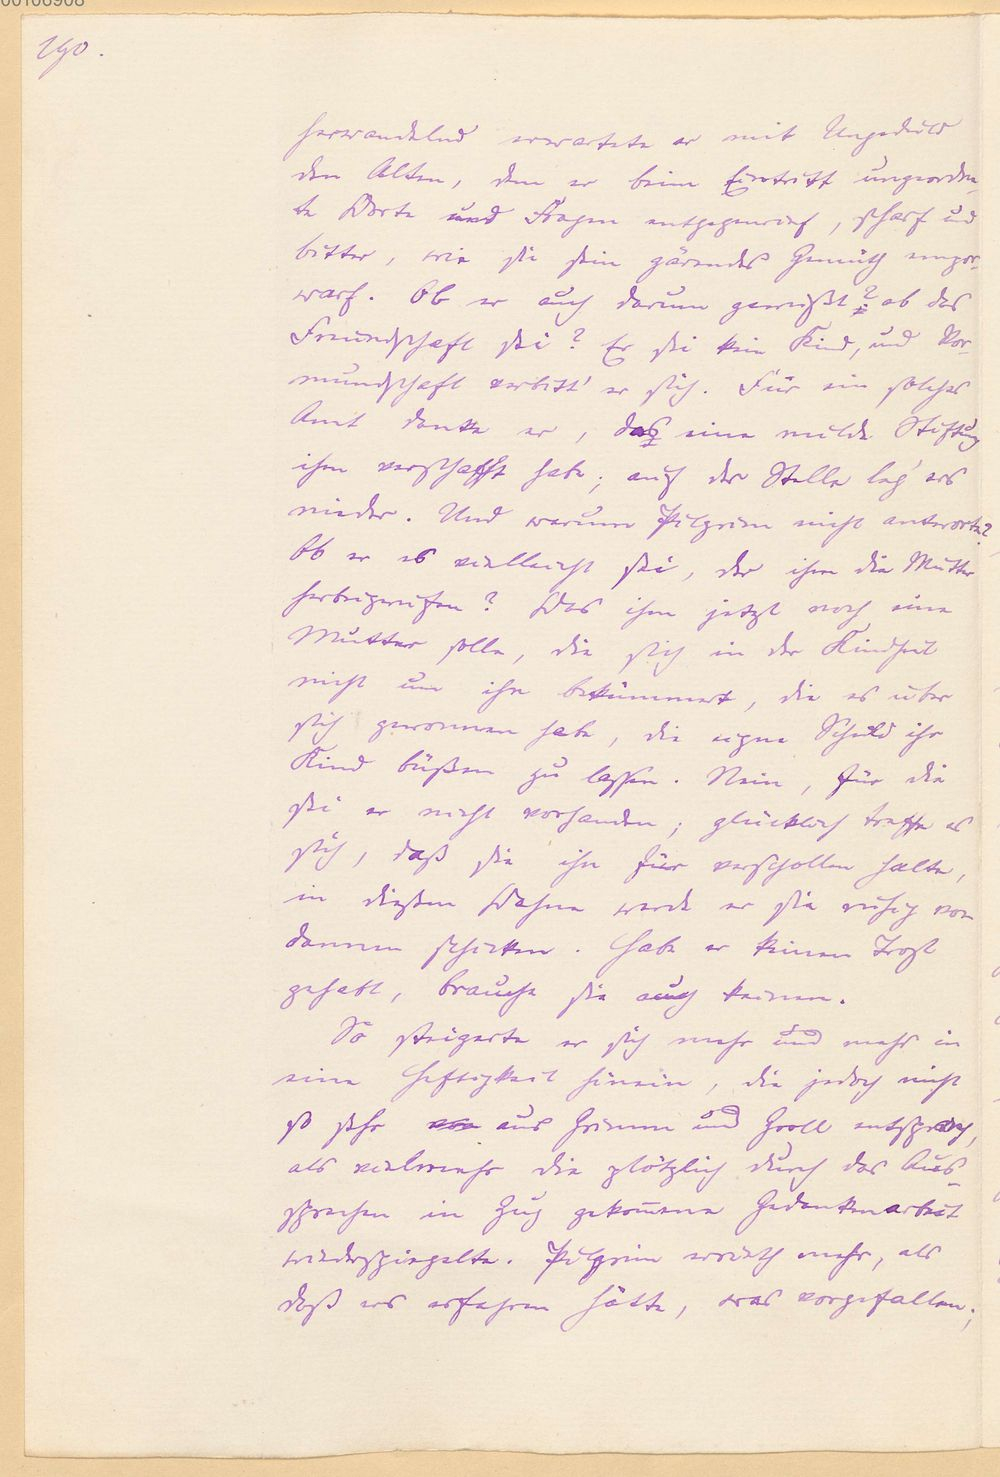 190.
herwandelnd erwartete er mit Ungeduld
den Alten, dem er beim Eintritt ungeordne-
te Worte und Fragen entgegenrief, scharf und
bitter, wie sie sein gärendes Gemüth empor-
warf. Ob er auch darum gewußt? ob das
Freundschaft sei? Er sei kein Kind, und Vor-
mundschaft verbitt' er sich. Für ein solches
Amt danke er, das eine milde Stiftung
ihm verschafft habe; auf der Stelle leg' ers
nieder. Und warum Pilgrim nicht antworte?
Ob er es vielleicht sei, der ihm die Mutter
herbeigerufen? Was ihm jetzt noch eine
Mutter solle, die sich in der Kindheit
nicht um ihn bekümmert, die es über
sich gewonnen habe, die eigne Schuld ihr
Kind büßen zu lassen. Nein, für die
sei er nicht vorhanden; glücklich treffe es
sich, daß sie ihn für verschollen halte,
in diesem Wahne werde er sie ruhig von
dannen schicken. Habe er keinen Trost
gehabt, brauche sie auch keinen.
So steigerte er sich mehr und mehr in
eine Heftigkeit hinein, die jedoch nicht
so sehr aus Grimm und Groll entsprach,
als vielmehr die plötzlich durch das Aus-
sprechen in Zug gekommene Gedankenarbeit
wiederspiegelte. Pilgrim errieth mehr, als
daß ers erfahren hätte, was vorgefallen;